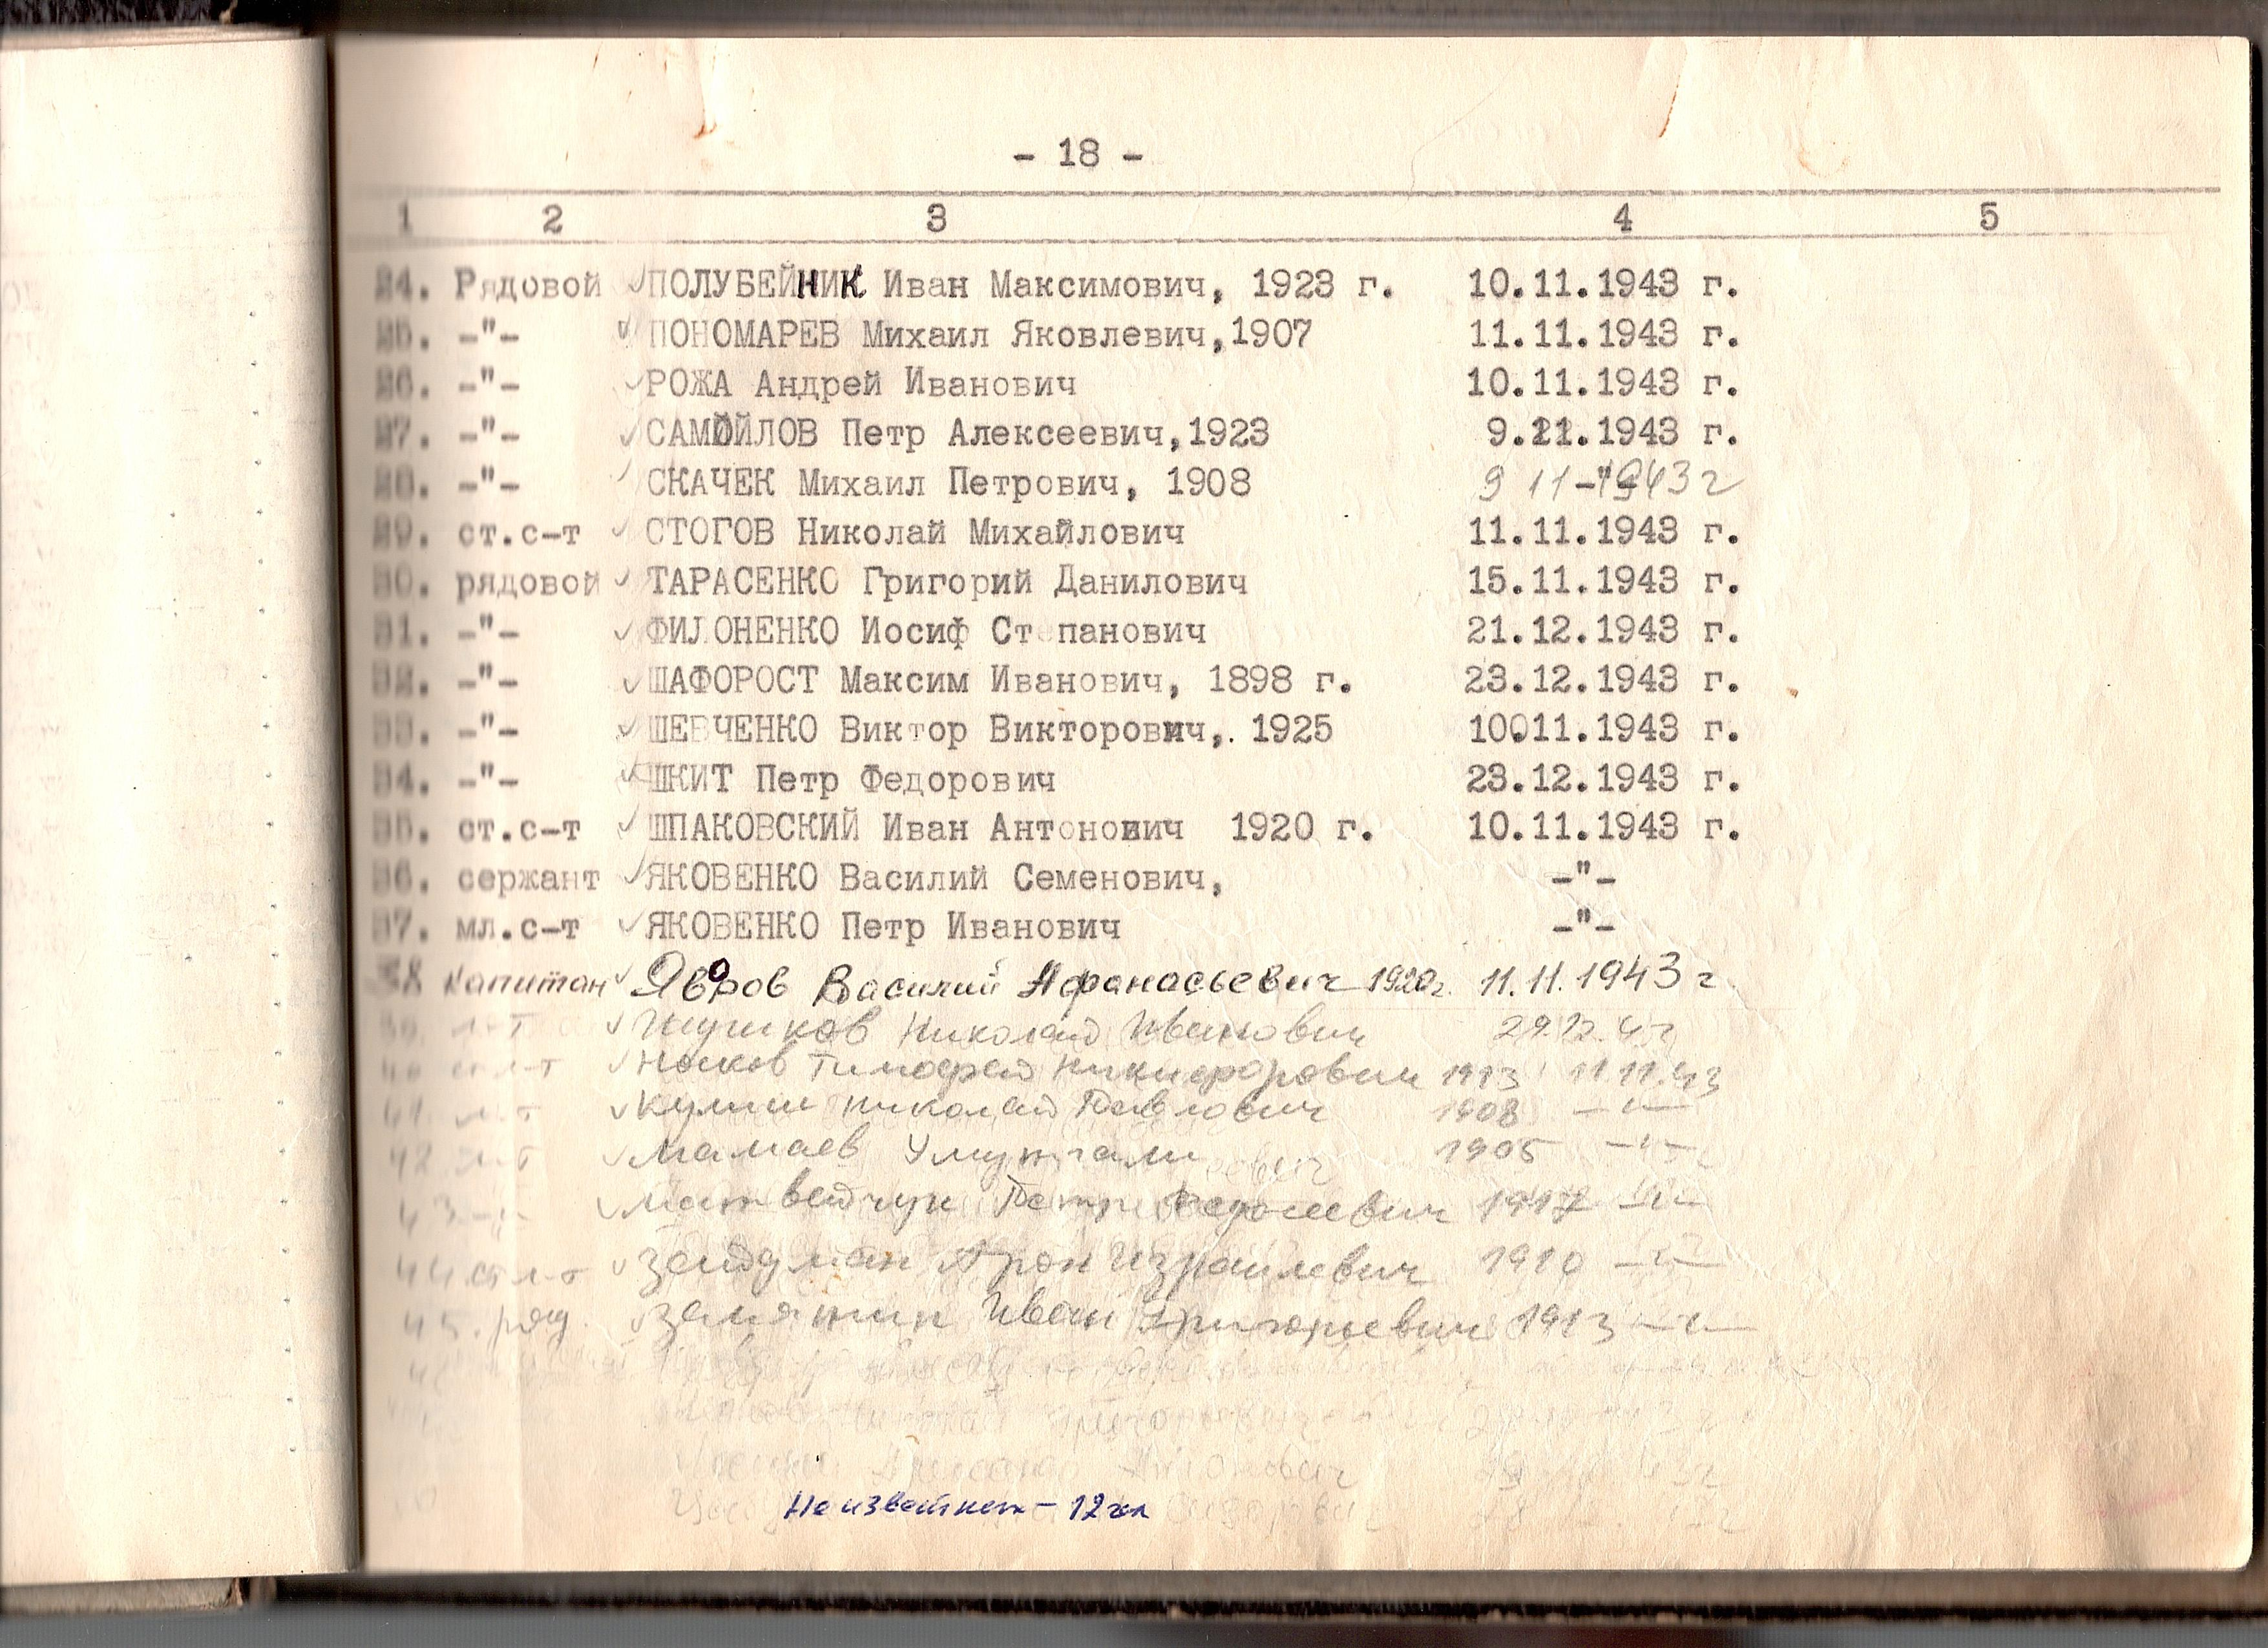 - 18 -
1 2 3 4 5
24. Рядовой ПОЛУБЕЙНИК Иван Максимович, 1923 г. 10.11.1943 г.
25. -"- ПОНОМАРЕВ Михаил Яковлевич,1907 11.11.1943 г.
26. -"- РОЖА Андрей Иванович 10.11.1943 г.
27. -"- САМОЙЛОВ Петр Алексеевич,1923 9.11.1943 г.
28. -"- СКАЧЕК Михаил Петрович, 1908 9 11 1943 г
29. ст.с-т СТОГОВ Николай Михайлович 11.11.1943 г.
30. рядовой ТАРАСЕНКО Григорий Данилович 15.11.1943 г.
31. -"- ФИЛОНЕНКО Иосиф Ст панович 21.12.1943 г.
32. -"- ШАФОРОСТ Максим Иванович, 1898 г. 23.12.1943 г.
33. -"- ШЕВЧЕНКО Виктор Викторович,. 1925 10.11.1943 г.
34. -"- ШКИТ Петр Федорович 23.12.1943 г.
35. ст.с-т ШПАКОВСКИЙ Иван Антонович 1920 г. 10.11.1943 г.
36. сержант ЯКОВЕНКО Василий Семенович, -"-
37. мл.с-т ЯКОВЕНКО Петр Иванович -"-
38 Капитан Яворов Василий Афанасьевич 1920г. 11.11.1943 г
Николай Иванович
Носков Тимофей Никифорович 1913 11.11.43
41. Николай Павлович 1908 -"-
42 Мамаев 1905 -"-
43 Матвейчук Петр 1917 -"-
44 ст л-т Зейдман Арон Израилевич 1910 -"-
45. ряд. Замяткин Иван Григорьевич 1913 -"-
Неизвестных - 12 чел